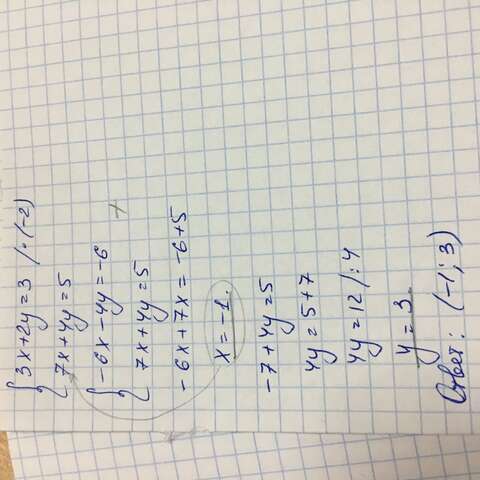 { 3x+2y=3 /·(-2)
7x+4y=5
{ -6x-4y=-6
+
7x+4y=5
-6x+7x=-6+5
x=-1.
-7+4y=5
4y=5+7
4y=12/:4
y=3
Ответ: (-1; 3)